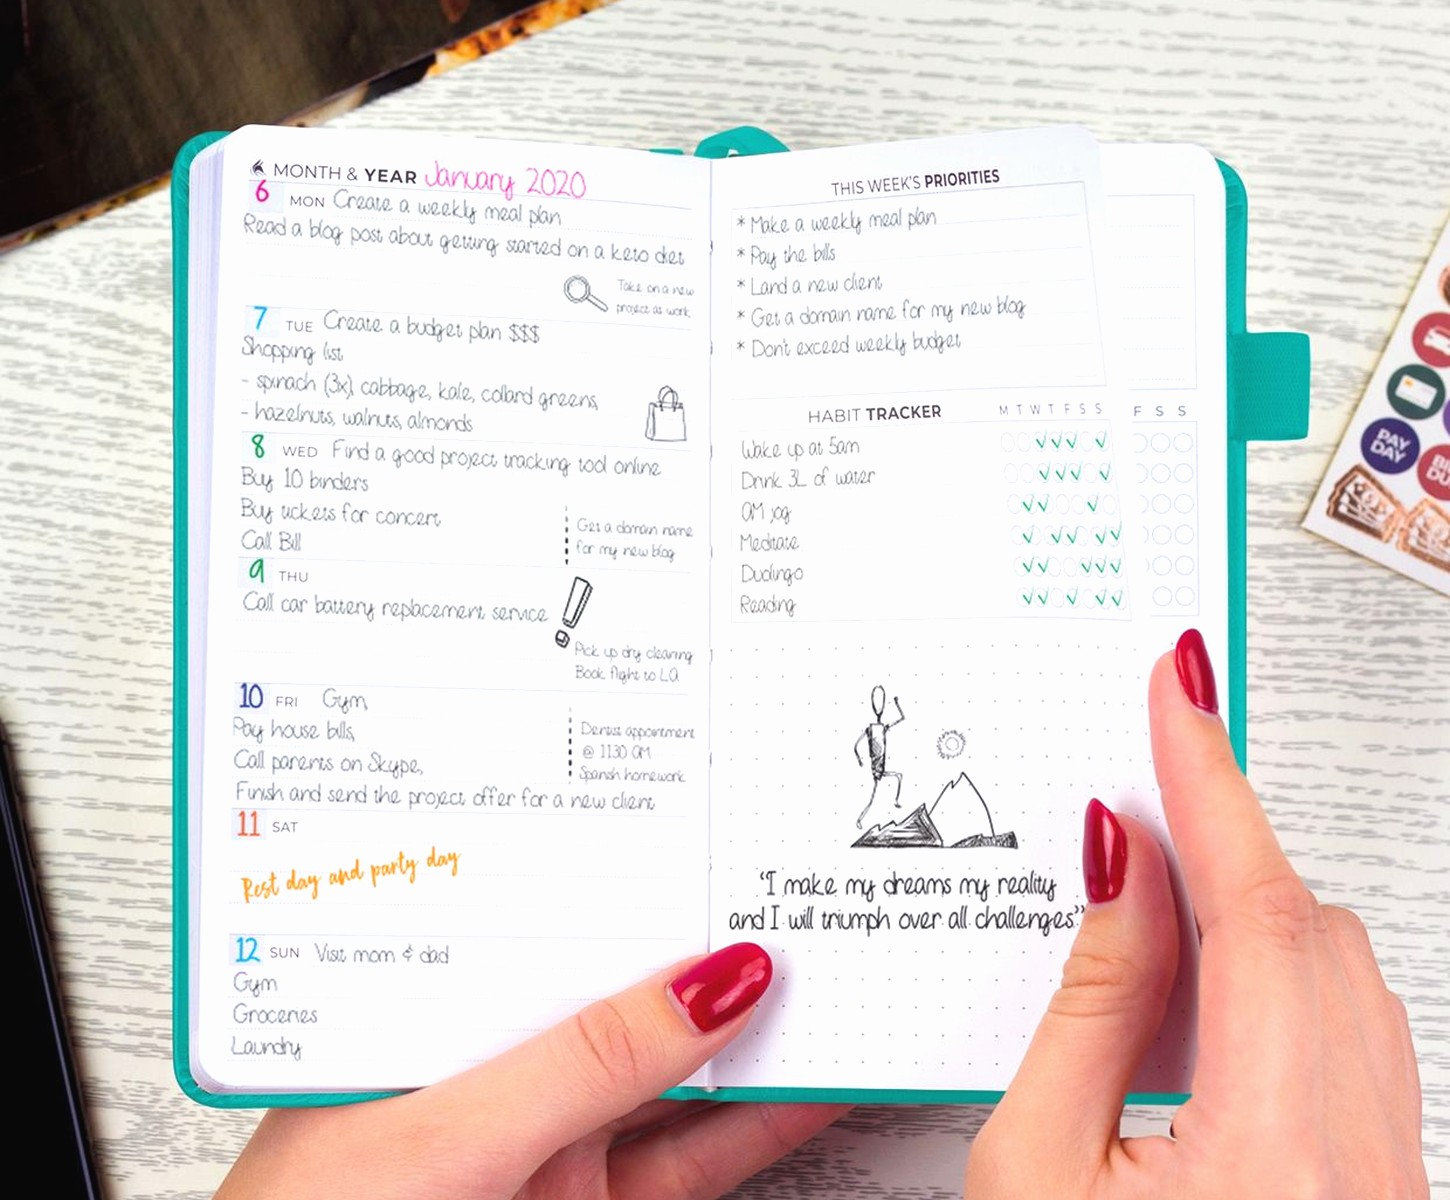 MONTH & YEAR January 2020
6 MON Create a weekly meal plan
Read a blog post about getting started on a keto diet
Take on a new
project at work
7 TUE Create a budget plan $$$
Shopping list
- spinach (3x), cabbage, kale, collard greens,
- hazelnuts, walnuts, almonds
8 WED Find a good project tracking tool online
Buy 10 binders
Buy tickets for concert
Call Bill
Get a domain name
for my new blog
9 THU
Call car battery replacement service
Pick up dry cleaning
Book flight to LA
10 FRI Gym,
Pay house bills,
Call parents on Skype,
Finish and send the project offer for a new client
Dentist appointment
@ 11:30 AM
Spanish homework
11 SAT
Rest day and party day
12 SUN Visit mom & dad
Gym
Groceries
Laundry
THIS WEEK'S PRIORITIES
* Make a weekly meal plan
* Pay the bills
* Land a new client
* Get a domain name for my new blog
* Don't exceed weekly budget
HABIT TRACKER M T W T F S S
Wake up at 5am
Drink 3L of water
AM jog
Meditate
Duolingo
Reading
F S S
"I make my dreams my reality
and I will triumph over all challenges"
PAY
DAY